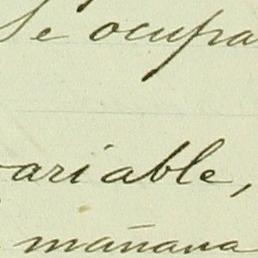 Se ocupa
variable,
mañana